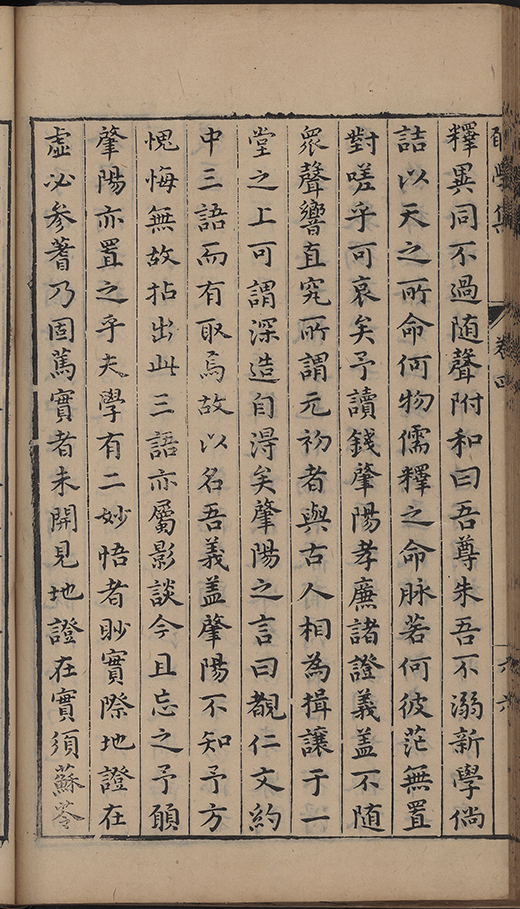 學集 卷四 六六
釋異同不過随聲附和曰吾尊朱吾不溺新學倘
詰以天之所命何物儒釋之命脉若何彼茫無置
對嗟乎可哀矣予讀錢肇陽孝廉諸證義盖不随
衆聲響直究所謂元初者與古人相為揖讓于一
堂之上可謂深造自淂矣肇陽之言曰覩仁文約
中三語而有取焉故以名吾義盖肇陽不知予方
愧悔無故拈出此三語亦屬影談今且忘之予願
肇陽亦置之乎夫學有二妙悟者眇實際地證在
虛必参蓍乃固篤實者未開見地證在實須蘇苓